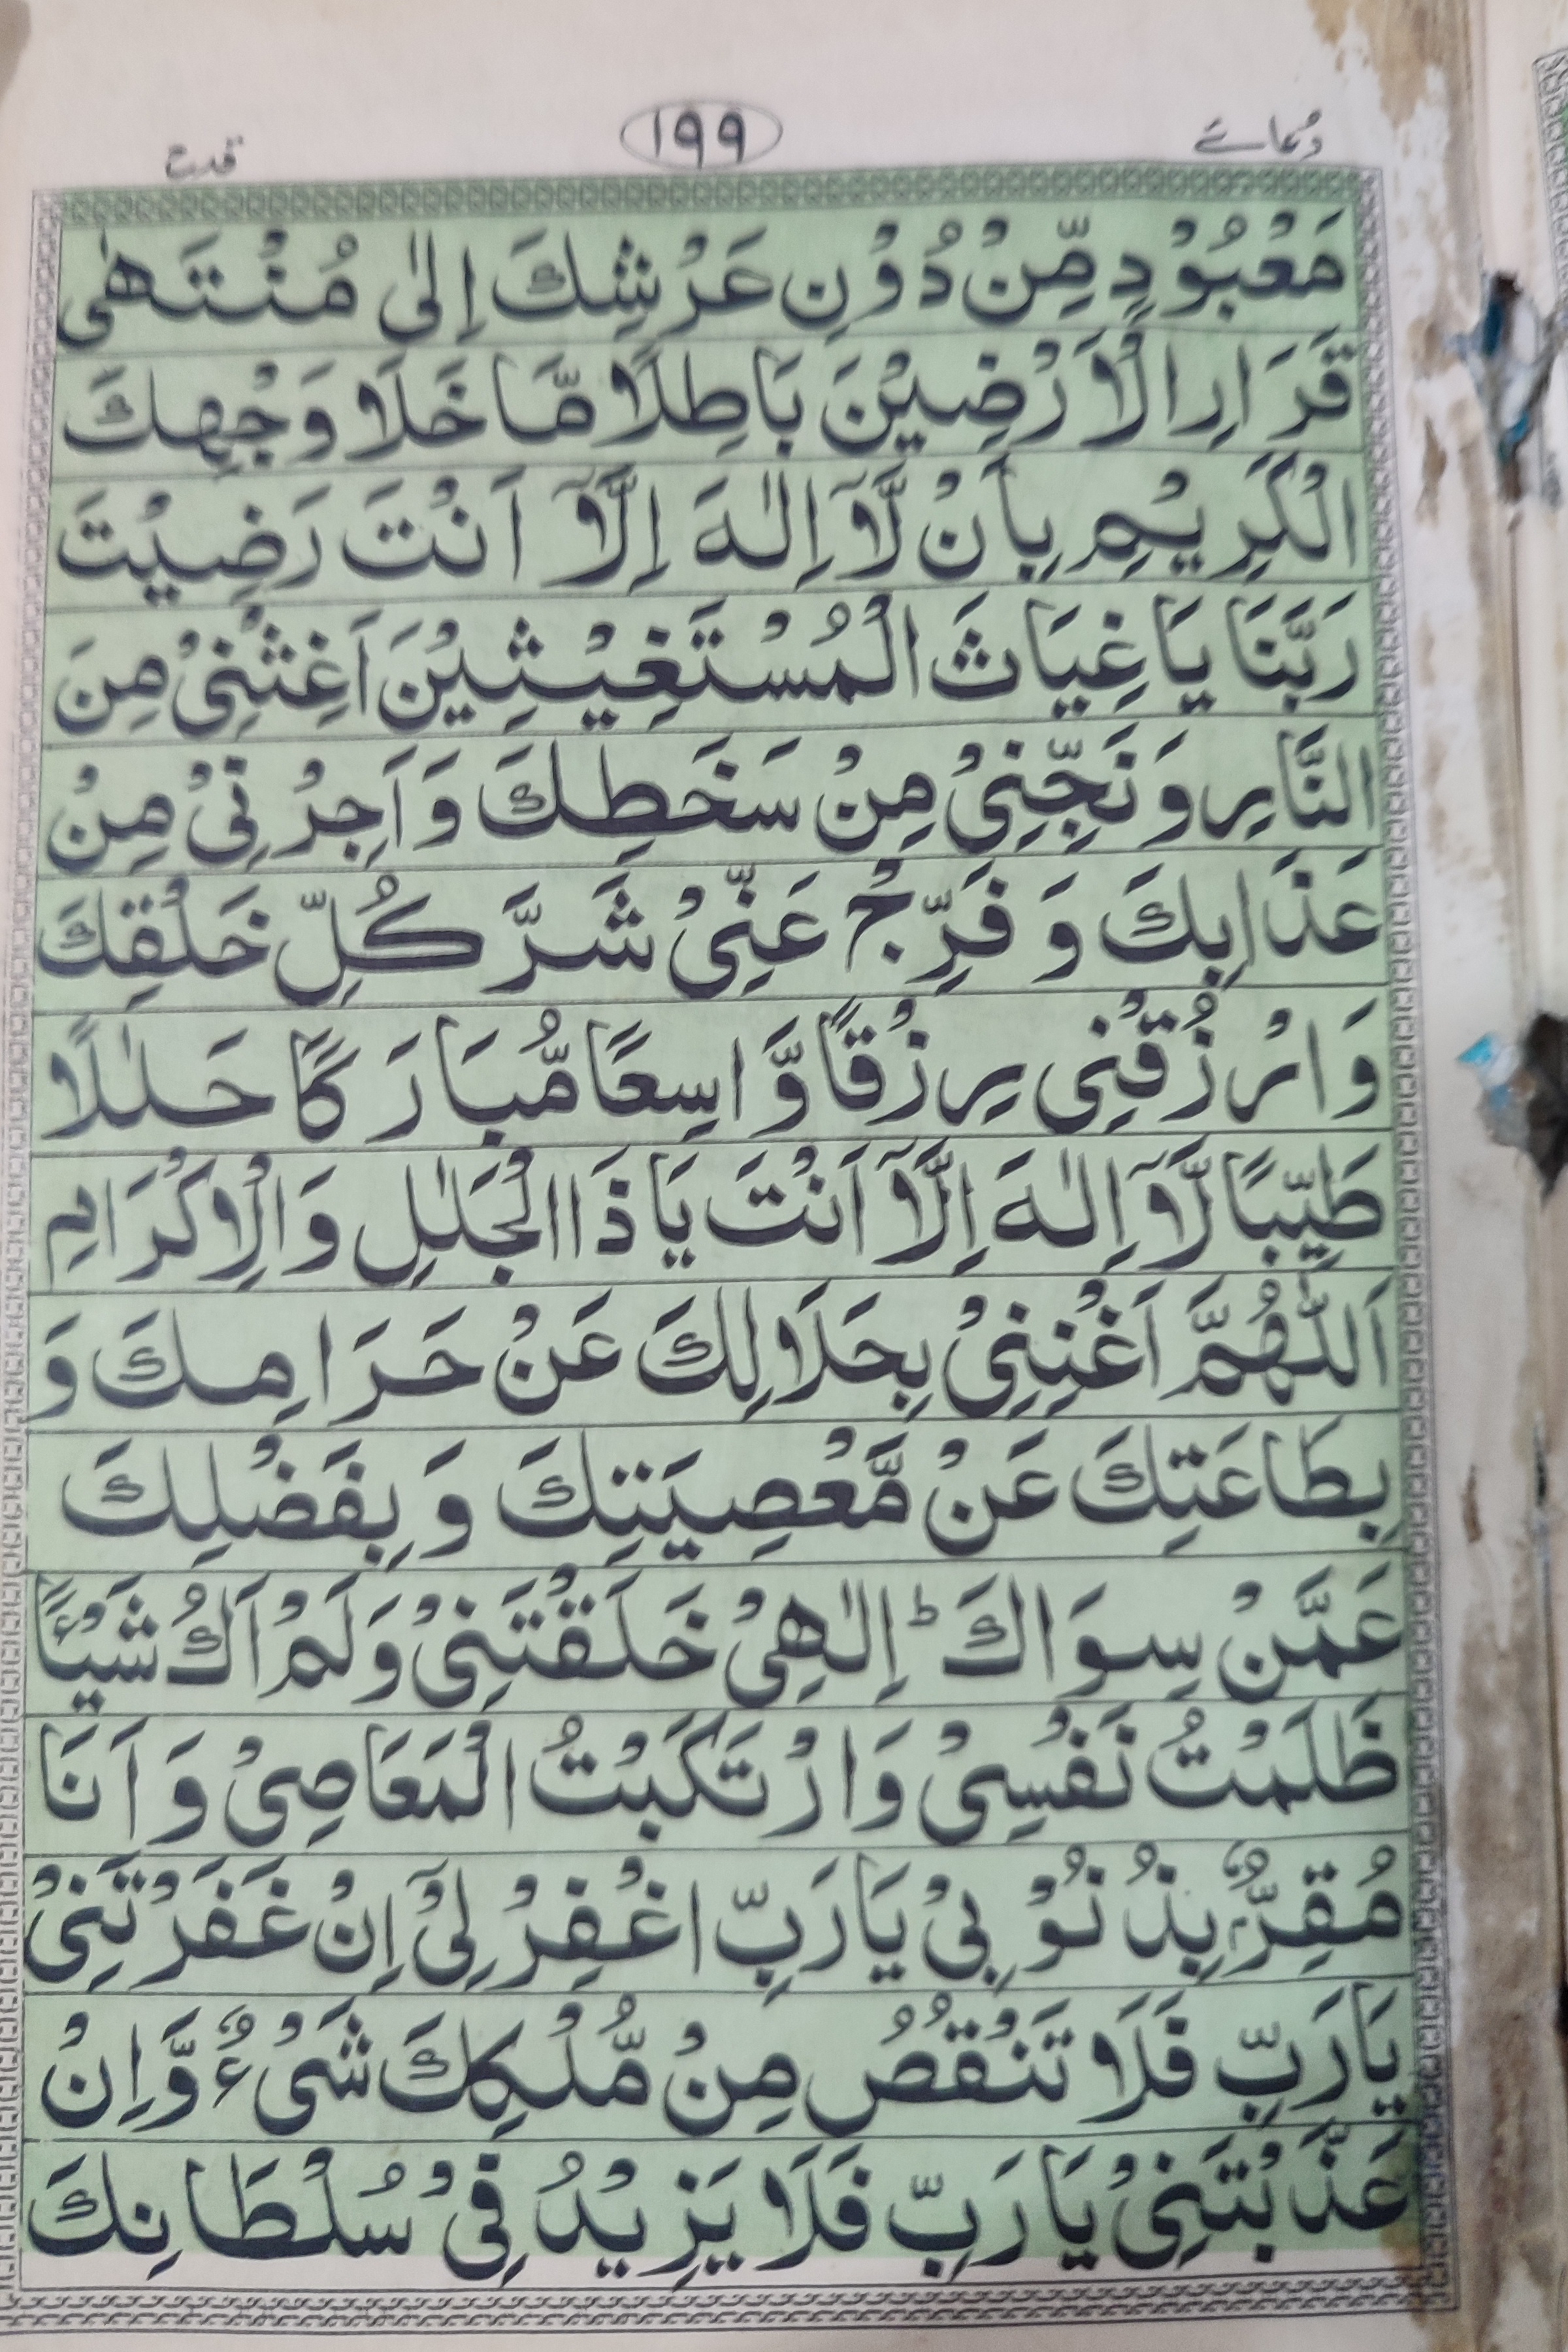 دُعائے ۱۹۹ قدح
مَعْبُوْدٍ مِّنْ دُوْنِ عَرْشِكَ اِلٰى مُنْتَهٰى
قَرَارِ الْاَرْضِيْنَ بَاطِلًا مَّا خَلَا وَجْهِكَ
الْكَرِيْمِ بِاَنْ لَّاۤ اِلٰهَ اِلَّاۤ اَنْتَ رَضِيْتَ
رَبَّنَا يَا غِيَاثَ الْمُسْتَغِيْثِيْنَ اَغِثْنِيْ مِنَ
النَّارِ وَنَجِّنِيْ مِنْ سَخَطِكَ وَاَجِرْنِيْ مِنْ
عَذَابِكَ وَ فَرِّجْ عَنِّيْ شَرَّ كُلِّ خَلْقِكَ
وَارْزُقْنِى رِزْقًا وَّاسِعًا مُّبَارَكًا حَلٰلًا
طَيِّبًا لَّاۤ اِلٰهَ اِلَّاۤ اَنْتَ يَا ذَاالْجَلٰلِ وَالْاِكْرَامِ
اَللّٰهُمَّ اَغْنِنِيْ بِحَلَالِكَ عَنْ حَرَامِكَ وَ
بِطَاعَتِكَ عَنْ مَّعْصِيَتِكَ وَ بِفَضْلِكَ
عَمَّنْ سِوَاكَ ؕ اِلٰهِيْ خَلَقْتَنِيْ وَلَمْ اَكُ شَيْئًا
ظَلَمْتُ نَفْسِيْ وَارْتَكَبْتُ الْمَعَاصِيْ وَ اَنَا
مُقِرٌّۢ بِذُنُوْبِيْ يَا رَبِّ اغْفِرْ لِيْۤ اِنْ غَفَرْتَنِيْ
يَا رَبِّ فَلَا تَنْقُصُ مِنْ مُّلْكِكَ شَيْءٌ وَّاِنْ
عَذَّبْتَنِيْ يَا رَبِّ فَلَا يَزِيْدُ فِيْ سُلْطَانِكَ